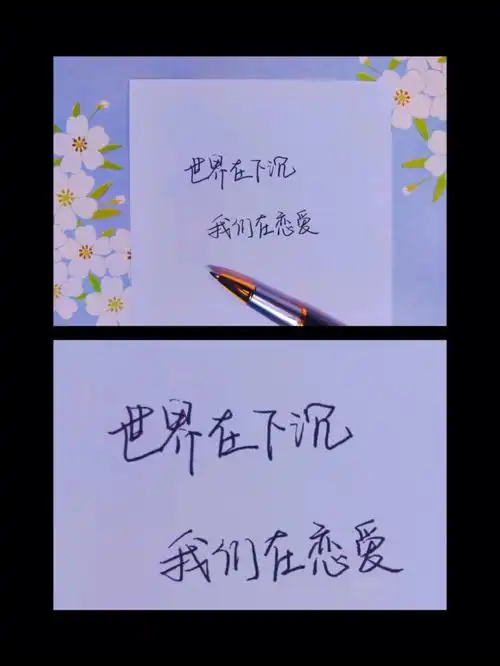 世界在下沉
我们在恋爱
世界在下沉
我们在恋爱